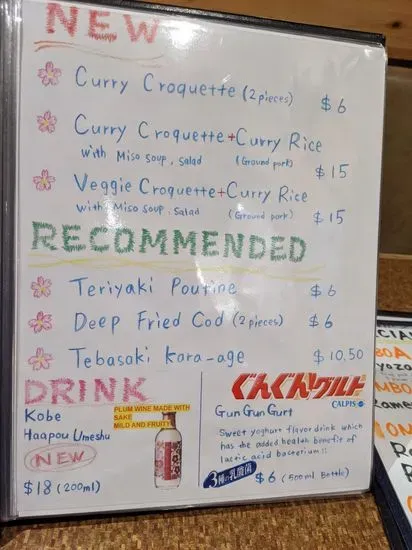 NEW
Curry Croquette (2 pieces) $6
Curry Croquette + Curry Rice
with Miso soup, salad (Ground pork) $15
Veggie Croquette + Curry Rice
with Miso soup, salad (Ground pork) $15
RECOMMENDED
Teriyaki Poutine $6
Deep Fried Cod (2 pieces) $6
Tebasaki kara-age $10.50
DRINK
Kobe
Haapou Umeshu
NEW
$18 (200ml)
PLUM WINE MADE WITH
SAKE
MILD AND FRUITY
ぐんぐんグルト
CALPIS
Gun Gun Gurt
Sweet yoghurt flavor drink which
has the added health benefits of
lactic acid bacterium!!
3種の乳酸菌
$6 (500ml Bottle)